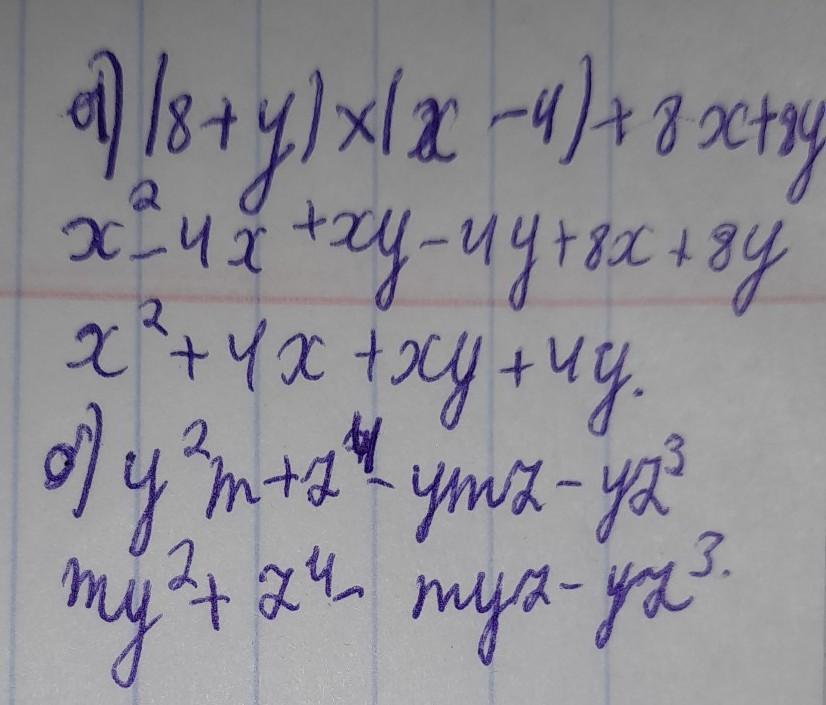 а) (8+y)×(x-4)+8x+8y
x²-4x+xy-4y+8x+8y
x²+4x+xy+4y.
б) y²m+z⁴-ymz-yz³
my²+z⁴-myz-yz³.